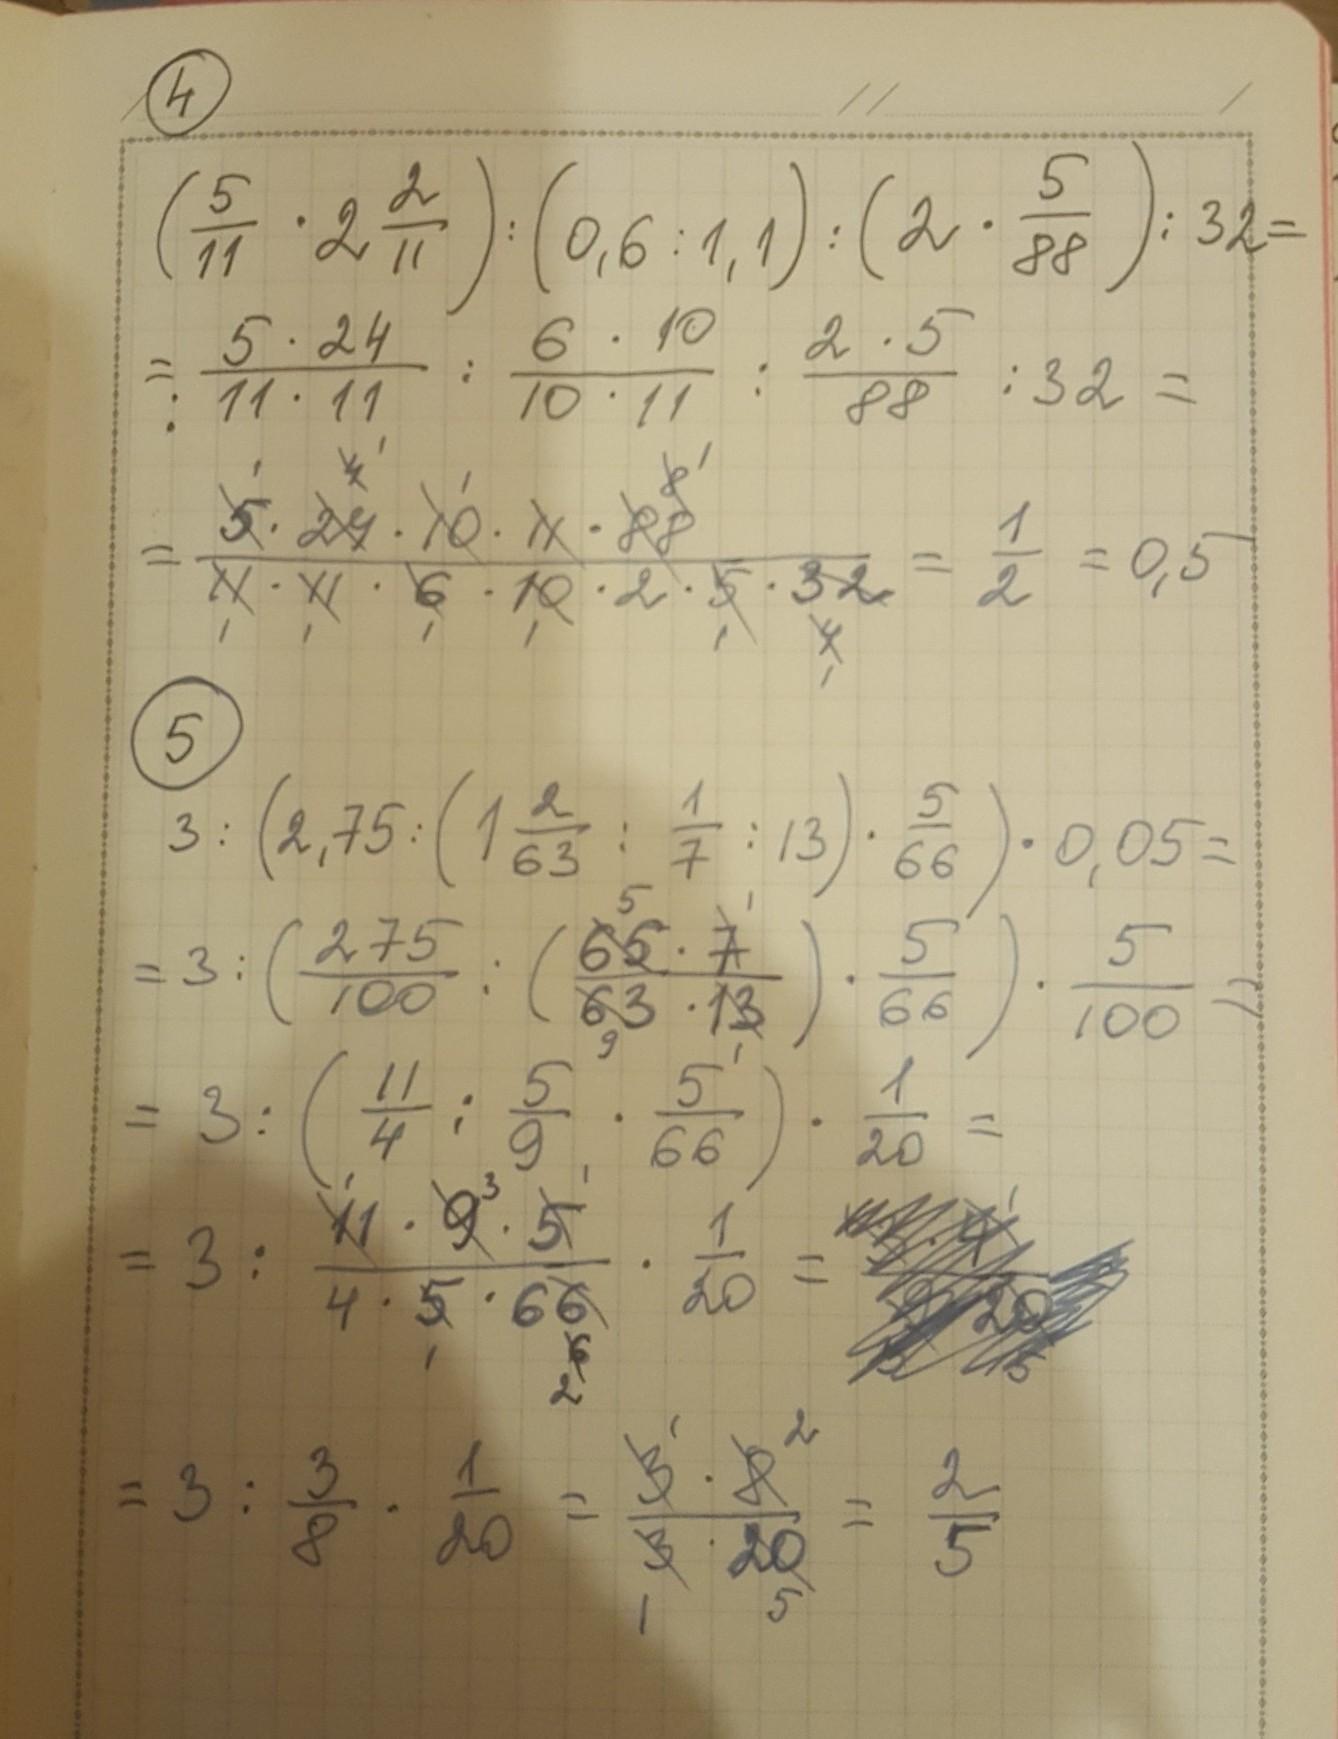 4
(5/11 · 2 2/11) : (0,6 : 1,1) : (2 · 5/88) : 32 =
= (5 · 24)/(11 · 11) : (6 · 10)/(10 · 11) : (2 · 5)/88 : 32 =
= (5 · 24 · 10 · 11 · 88)/(11 · 11 · 6 · 10 · 2 · 5 · 32) = 1/2 = 0,5
5
3 : (2,75 : (1 2/63 : 1/7 : 13) · 5/66) · 0,05 =
= 3 : (275/100 : ((65 · 7)/(63 · 13)) · 5/66) · 5/100 =
= 3 : (11/4 : 5/9 · 5/66) · 1/20 =
= 3 : (11 · 9 · 5)/(4 · 5 · 66) · 1/20 =
= 3 : 3/8 · 1/20 = (3 · 8)/(3 · 20) = 2/5